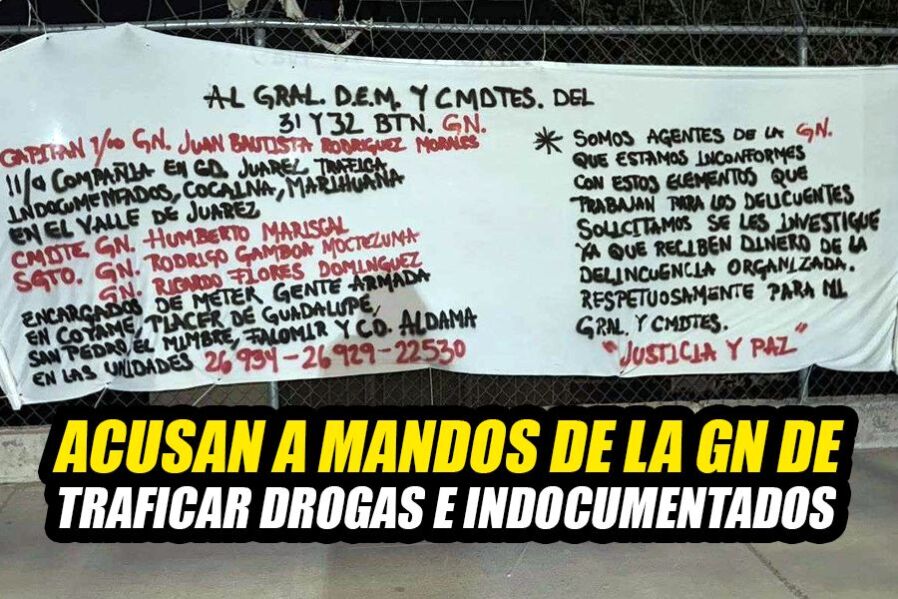 AL GRAL. D.E.M. Y CMDTES. DEL
31 Y 32 BTN. GN.
CAPITAN 1/00 GN. JUAN BAUTISTA RODRIGUEZ MORALES
11/a COMPAÑIA EN CD JUAREZ TRAFICA
INDOCUMENTADOS, COCAINA, MARIHUANA
EN EL VALLE DE JUAREZ
CMDTE GN. HUMBERTO MARISCAL
SGTO. GN. RODRIGO GAMBOA MOCTEZUMA
GN. RICARDO FLORES DOMINGUEZ
ENCARGADOS DE METER GENTE ARMADA
EN COYAME, PLACER DE GUADALUPE,
SAN PEDRO, EL MIMBRE, FALOMIR Y CD. ALDAMA
EN LAS UNIDADES 26934-26929-22530
* SOMOS AGENTES DE LA GN.
QUE ESTAMOS INCONFORMES
CON ESTOS ELEMENTOS QUE
TRABAJAN PARA LOS DELICUENTES
SOLICITAMOS SE LES INVESTIGUE
YA QUE RECIBEN DINERO DE LA
DELINCUENCIA ORGANIZADA.
RESPETUOSAMENTE PARA MI
GRAL. Y CMDTES.
"JUSTICIA Y PAZ"
ACUSAN A MANDOS DE LA GN DE
TRAFICAR DROGAS E INDOCUMENTADOS